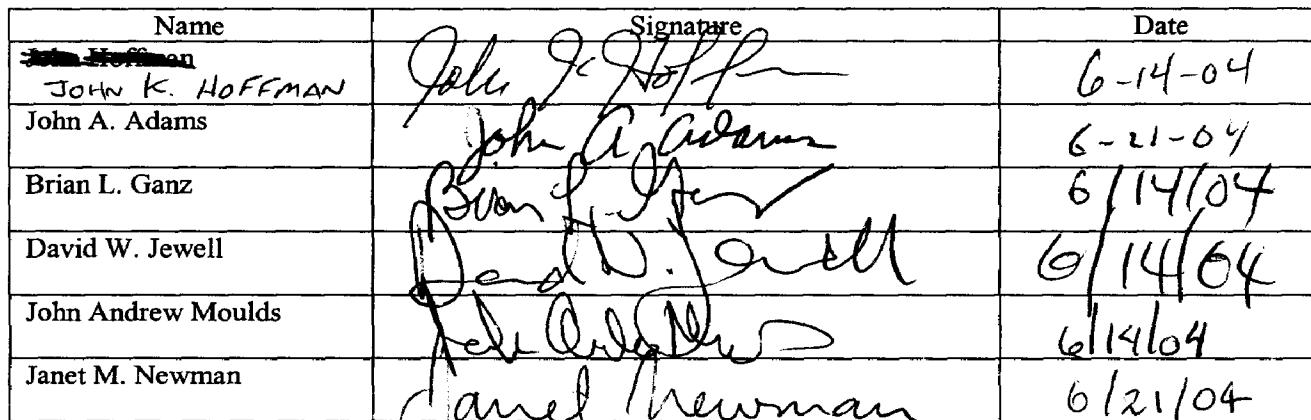 Name Signature Date
John Hoffman
JOHN K. HOFFMAN John K Hoffman 6-14-04
John A. Adams John A. Adams 6-21-04
Brian L. Ganz Brian L. Ganz 6/14/04
David W. Jewell David W. Jewell 6/14/04
John Andrew Moulds 6/14/04
Janet M. Newman Janet Newman 6/21/04